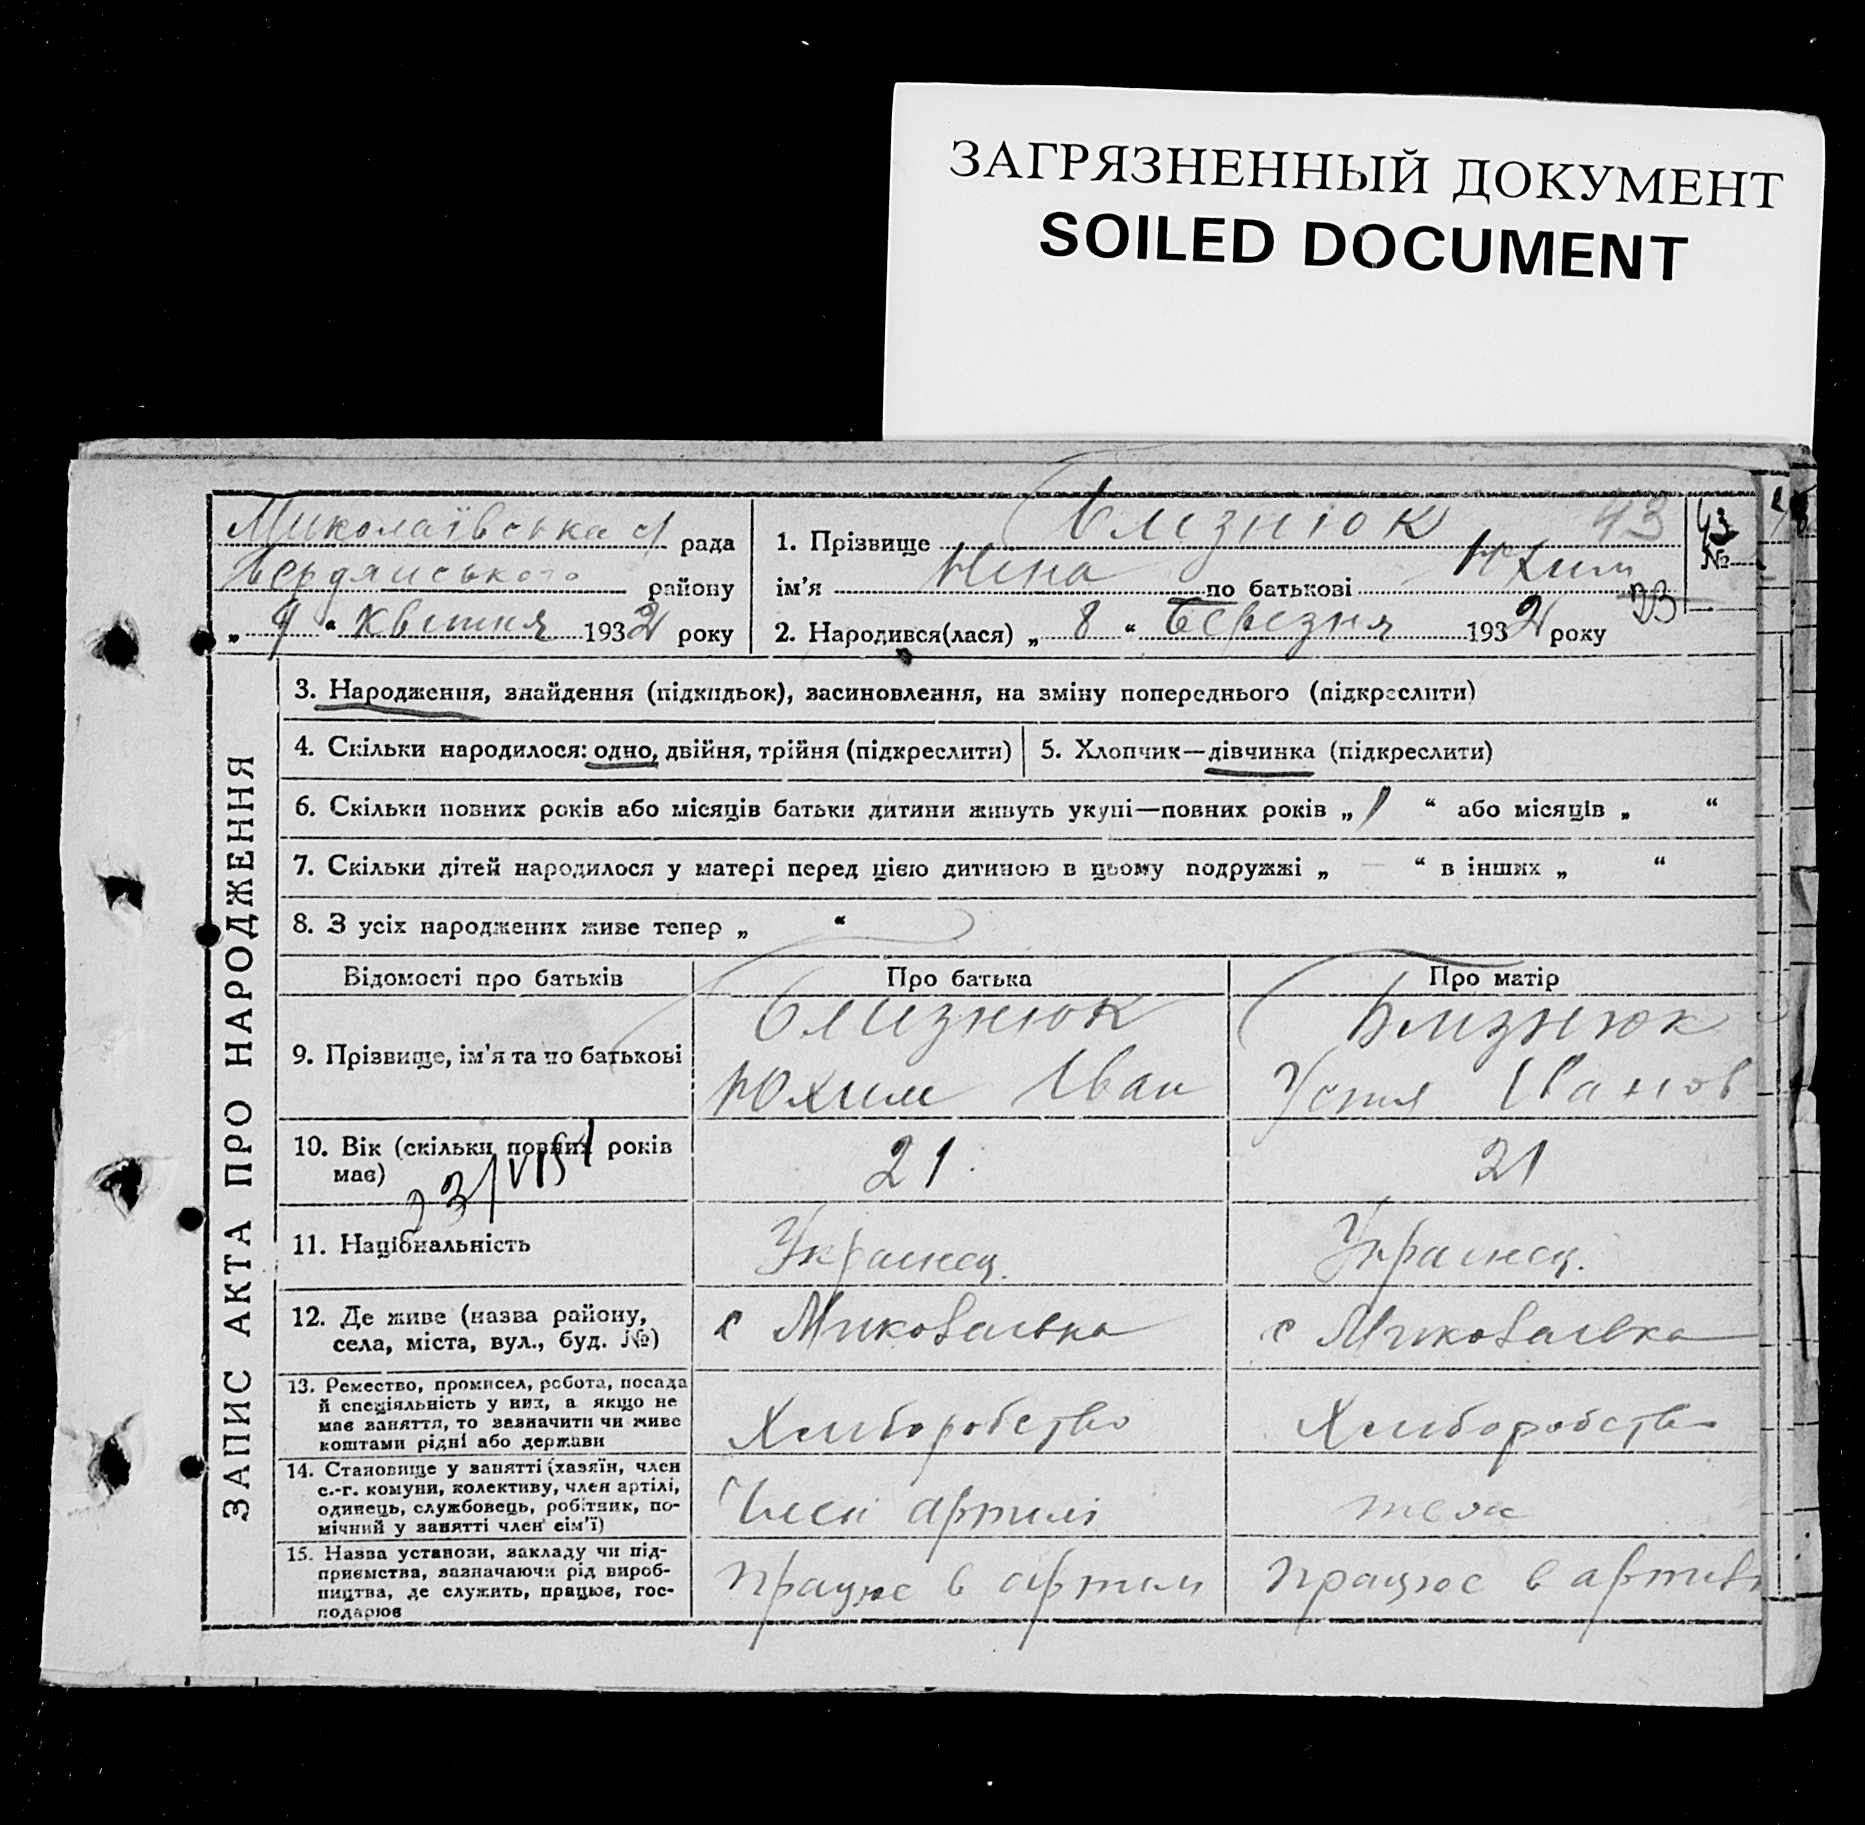 ЗАГРЯЗНЕННЫЙ ДОКУМЕНТ
SOILED DOCUMENT
Миколаївська с/ рада
Бердянського району
„ 9 “ квітня 1932 року
1. Прізвище Близнюк 43
ім’я Ніна по батькові Юхим
2. Народився(лася) „ 8 “ березня 1932 року
43
№
ЗАПИС АКТА ПРО НАРОДЖЕННЯ
3. Народження, знайдення (підкидьок), засиновлення, на зміну попереднього (підкреслити)
4. Скільки народилося: одно, двійня, трійня (підкреслити)
5. Хлопчик—дівчинка (підкреслити)
6. Скільки повних років або місяців батьки дитини живуть укупі—повних років „ 1 “ або місяців „ “
7. Скільки дітей народилося у матері перед цією дитиною в цьому подружжі „ — “ в інших „ “
8. З усіх народжених живе тепер „ “
Відомості про батьків Про батька Про матір
9. Прізвище, ім’я та по батькові
Близнюк
Юхим Іван
Близнюк
Устя Іванов
10. Вік (скільки повних років
має)
21
21
11. Національність
Украинец.
Украинец.
12. Де живе (назва району,
села, міста, вул., буд. №)
с Миколаївка
с Миколаївка
13. Ремество, промисел, робота, посада
й спеціяльність у них, а якщо не
має заняття, то зазначити чи живе
коштами рідні або держави
Хліборобство
Хліборобство
14. Становище у занятті (хазяїн, член
с.-г. комуни, колективу, член артілі,
одинець, службовець, робітник, по-
мічний у занятті член сім’ї)
Член артілі
теж
15. Назва установи, закладу чи під-
приємства, зазначаючи рід вироб-
ництва, де служить, працює, гос-
подарює
працює в артілі
працює в артілі